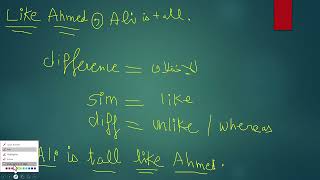 Like Ahmed, Ali is tall.
difference =
sim = like
diff = unlike / whereas
Ali is tall like Ahmed.